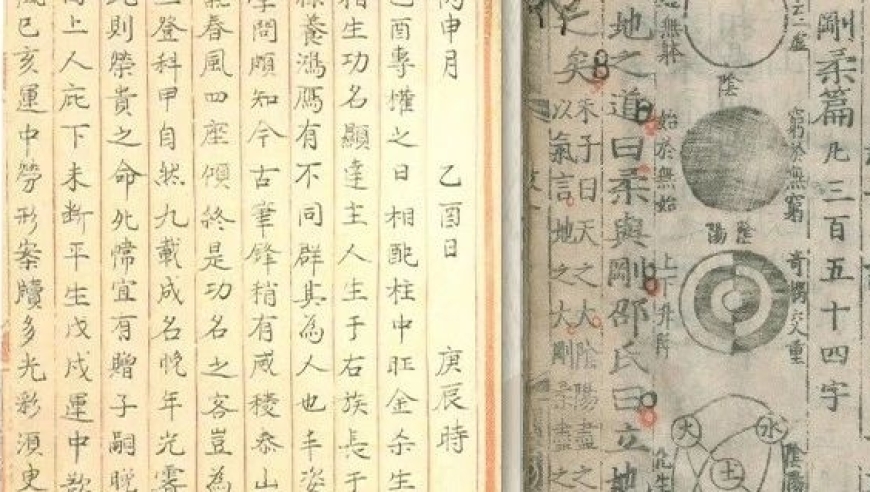 剛柔篇凡三百五十四字
窮於無窮
奇耦交重
陰陽
陰
陰陽
水
火
土
始無
始於無始
上下升降
化生
地之道曰柔與剛邵氏曰立地
之矣
朱子曰天之大陰陽盡之
以氣言地之大剛柔盡之
申月 乙酉日 庚辰時
乙酉專權之日相配柱中旺金杀生
相生功名顯達主人生于右族長于
養鴻鴈有不同群其為人也丰姿
學問頗知今古筆鋒稍有威稜泰山
春風四座傾終是功名之客豈為
二登科甲自然九載成名晚年光霽
此則榮貴之命宜有贈子嗣晚
上人庇下未断平生戊戌運中歡
巳亥運中勞形案牘多光彩須更